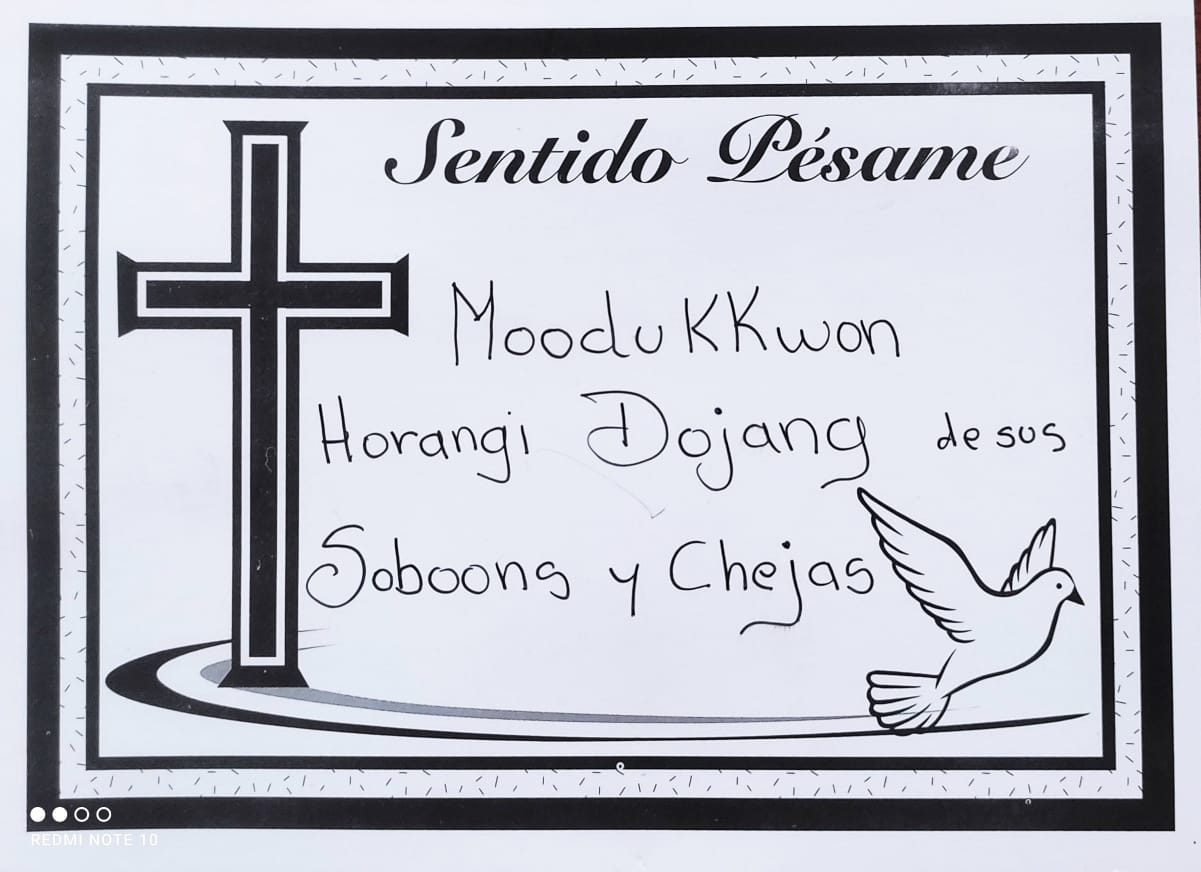 Sentido Pésame
MooduKKwon
Horangi Dojang de sus
Soboons y Chejas
REDMI NOTE 10